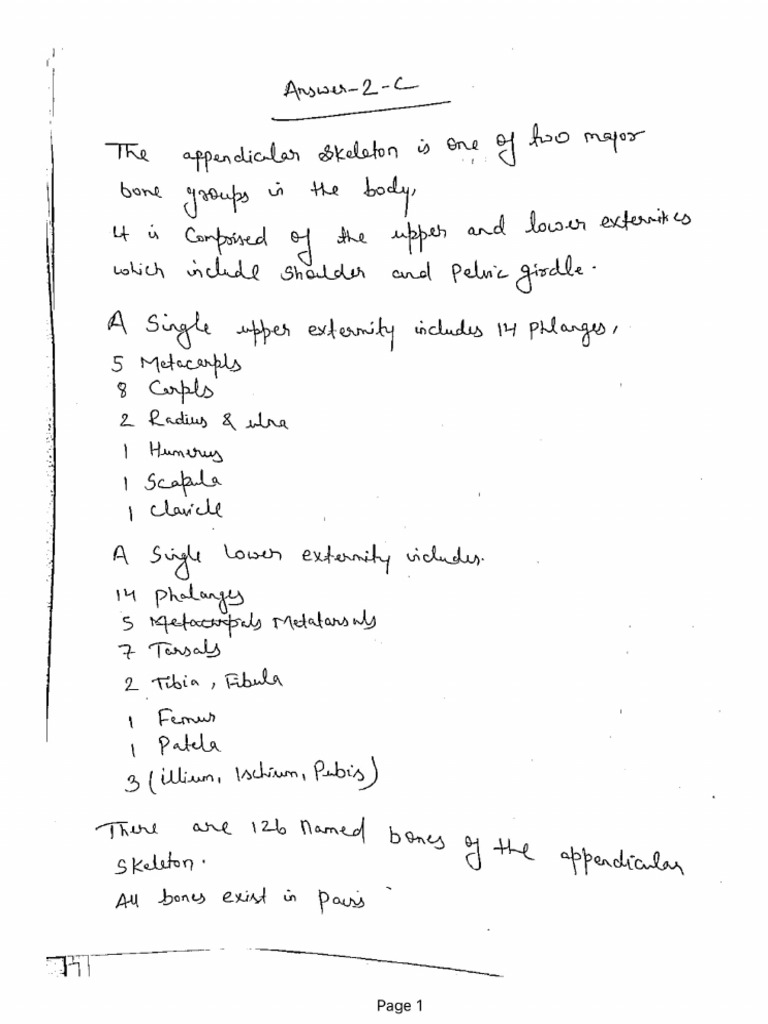 Answer-2-C
The appendicular skeleton is one of two major
bone groups in the body,
It is Comprised of the upper and lower externities
which include shoulder and Pelvic girdle.
A Single upper externity includes 14 Phlanges,
5 Metacarpls
8 Carpls
2 Radius & ulna
1 Humerus
1 Scapula
1 Clavicle
A Single Lower externity includes.
14 phalanges
5 Metacarpals Metatarsals
7 Tarsals
2 Tibia, Fibula
1 Femur
1 Patela
3 (illium, Ischium, Pubis)
There are 126 Named bones of the appendicular
skeleton.
All bones exist in pairs
Page 1